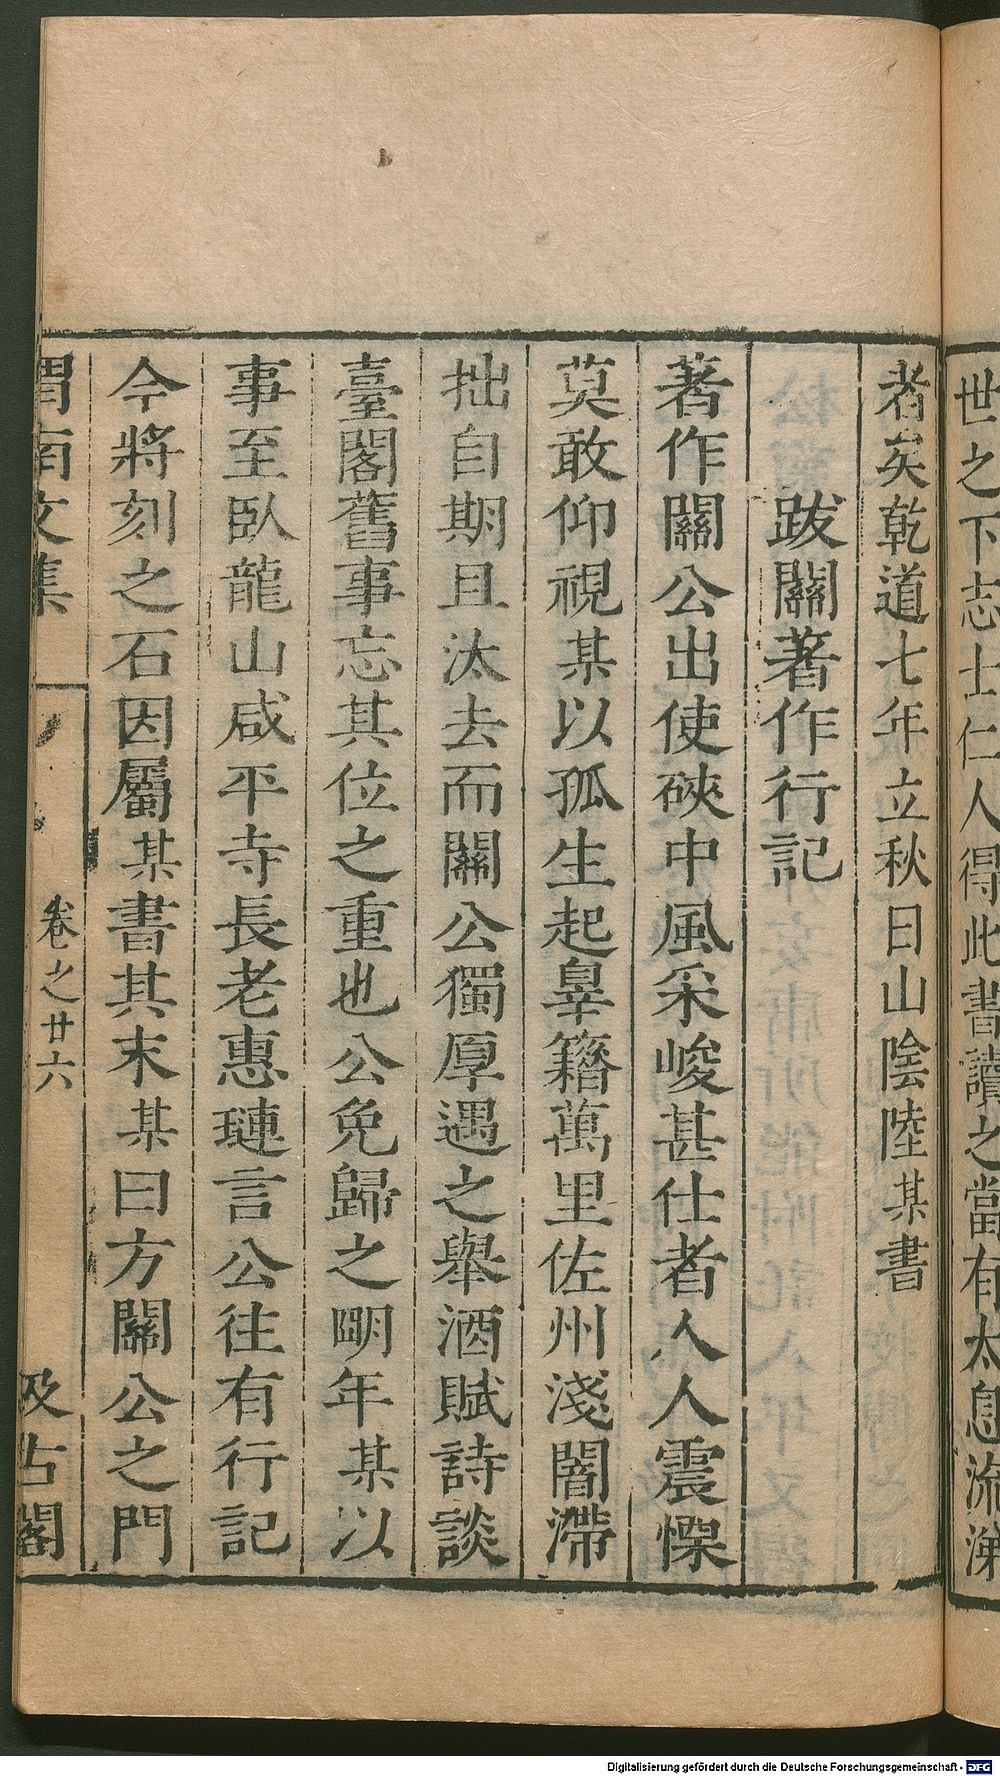 世之下志士仁人得此書讀之當有太息流涕
者矣乾道七年立秋日山陰陸某書
跋關著作行記
著作關公出使硤中風采峻甚仕者人人震慄
莫敢仰視某以孤生起辠籍萬里佐州淺闇滯
拙自期且汰去而關公獨厚遇之舉酒賦詩談
臺閣舊事忘其位之重也公免歸之明年某以
事至臥龍山咸平寺長老惠璉言公往有行記
今將刻之石因屬某書其末某曰方關公之門
渭南文集
卷之廿六
汲古閣
Digitalisierung gefördert durch die Deutsche Forschungsgemeinschaft - DFG